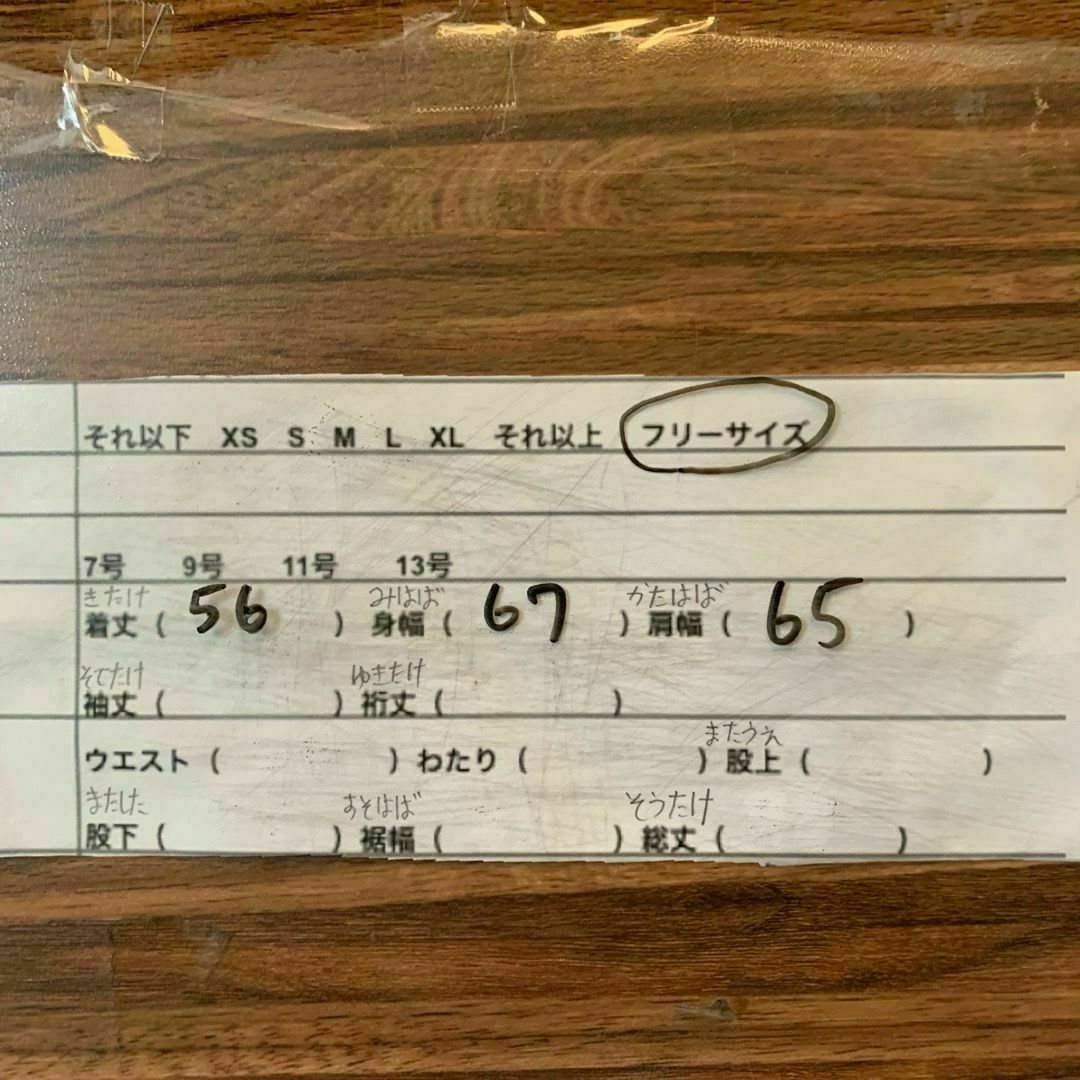 それ以下 XS S M L XL それ以上 フリーサイズ
7号 9号 11号 13号
きたけ みはば かたはば
着丈 ( 56 ) 身幅 ( 67 ) 肩幅 ( 65 )
そでたけ ゆきたけ
袖丈 ( ) 裄丈 ( )
またうえ
ウエスト ( ) わたり ( ) 股上 ( )
またした すそはば そうたけ
股下 ( ) 裾幅 ( ) 総丈 ( )